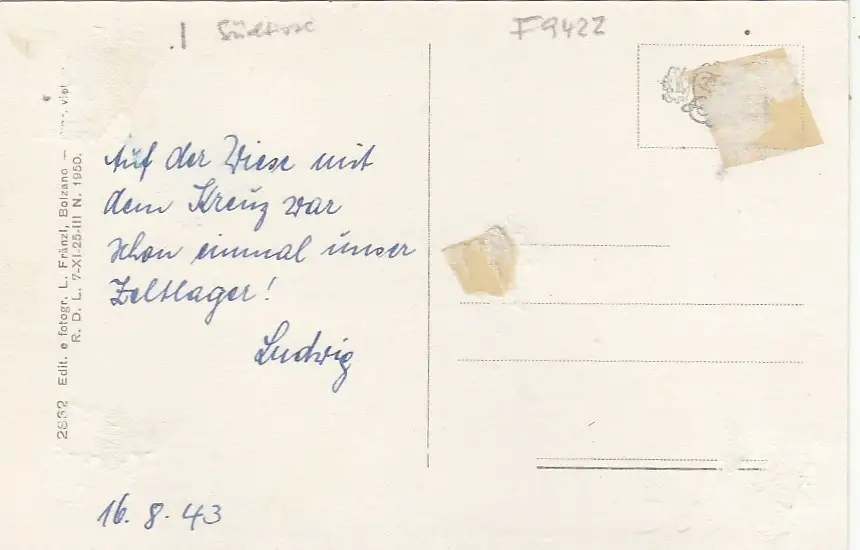 Südtirol
F9422
Auf der Wiese mit
dem Kreuz war
schon einmal unser
Zeltlager!
Ludwig
16. 8. 43
2832 Edit. e fotogr. L. Fränzl, Bolzano —
R. D. L. 7-XI-25-III N. 1950.